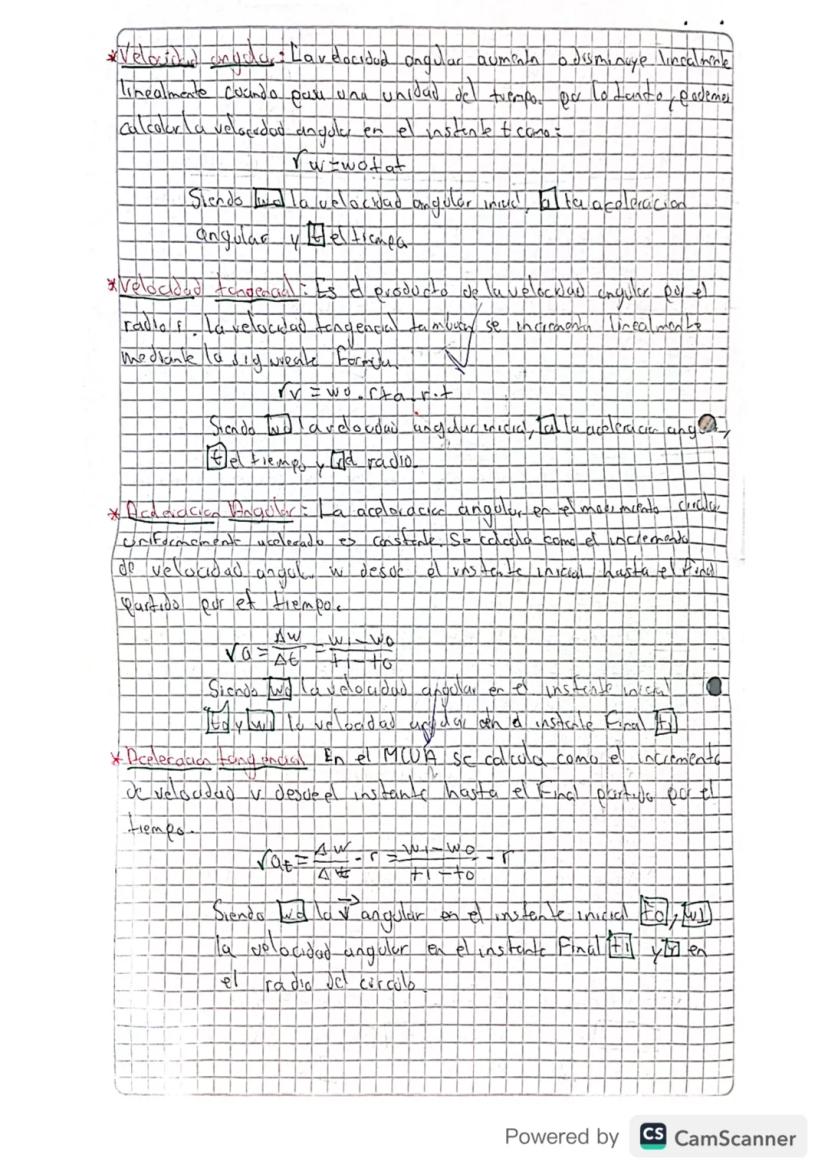 *Velocidad angular: La velocidad angular aumenta o disminuye linealmente
linealmente cuando pasa una unidad del tiempo. por lo tanto, podemos
calcular la velocidad angular en el instante t como:
√w=wo+at
Siendo wo la velocidad angular inicial, a la aceleracion
angular y t el tiempo
*Velocidad tangencial: Es el producto de la velocidad angular por el
radio r. La velocidad tangencial tambien se incrementa linealmente
mediante la siguiente formula.
√v=wo.r+a.r.t
Siendo wo la velocidad angular inicial, a la aceleracion ang
t el tiempo y r el radio.
*Aceleracion Angular: La aceleracion angular en el movimiento circular
uniformemente acelerado es constante. Se calcula como el incremento
de velocidad angular w desde el instante inicial hasta el final
partido por el tiempo.
√a=Δw/Δt=w1-wo/t1-to
Siendo wo la velocidad angular en el instante inicial
to y w1 la velocidad angular en el instante final t1
*Aceleracion tangencial En el MCUA se calcula como el incremento
de velocidad v desde el instante hasta el final partido por el
tiempo.
√at=Δw/Δt·r=w1-wo/t1-to·r
Siendo wo la v⃗ angular en el instante inicial to, w1
la velocidad angular en el instante final t1 y r en
el radio del circulo.
Powered by CS CamScanner